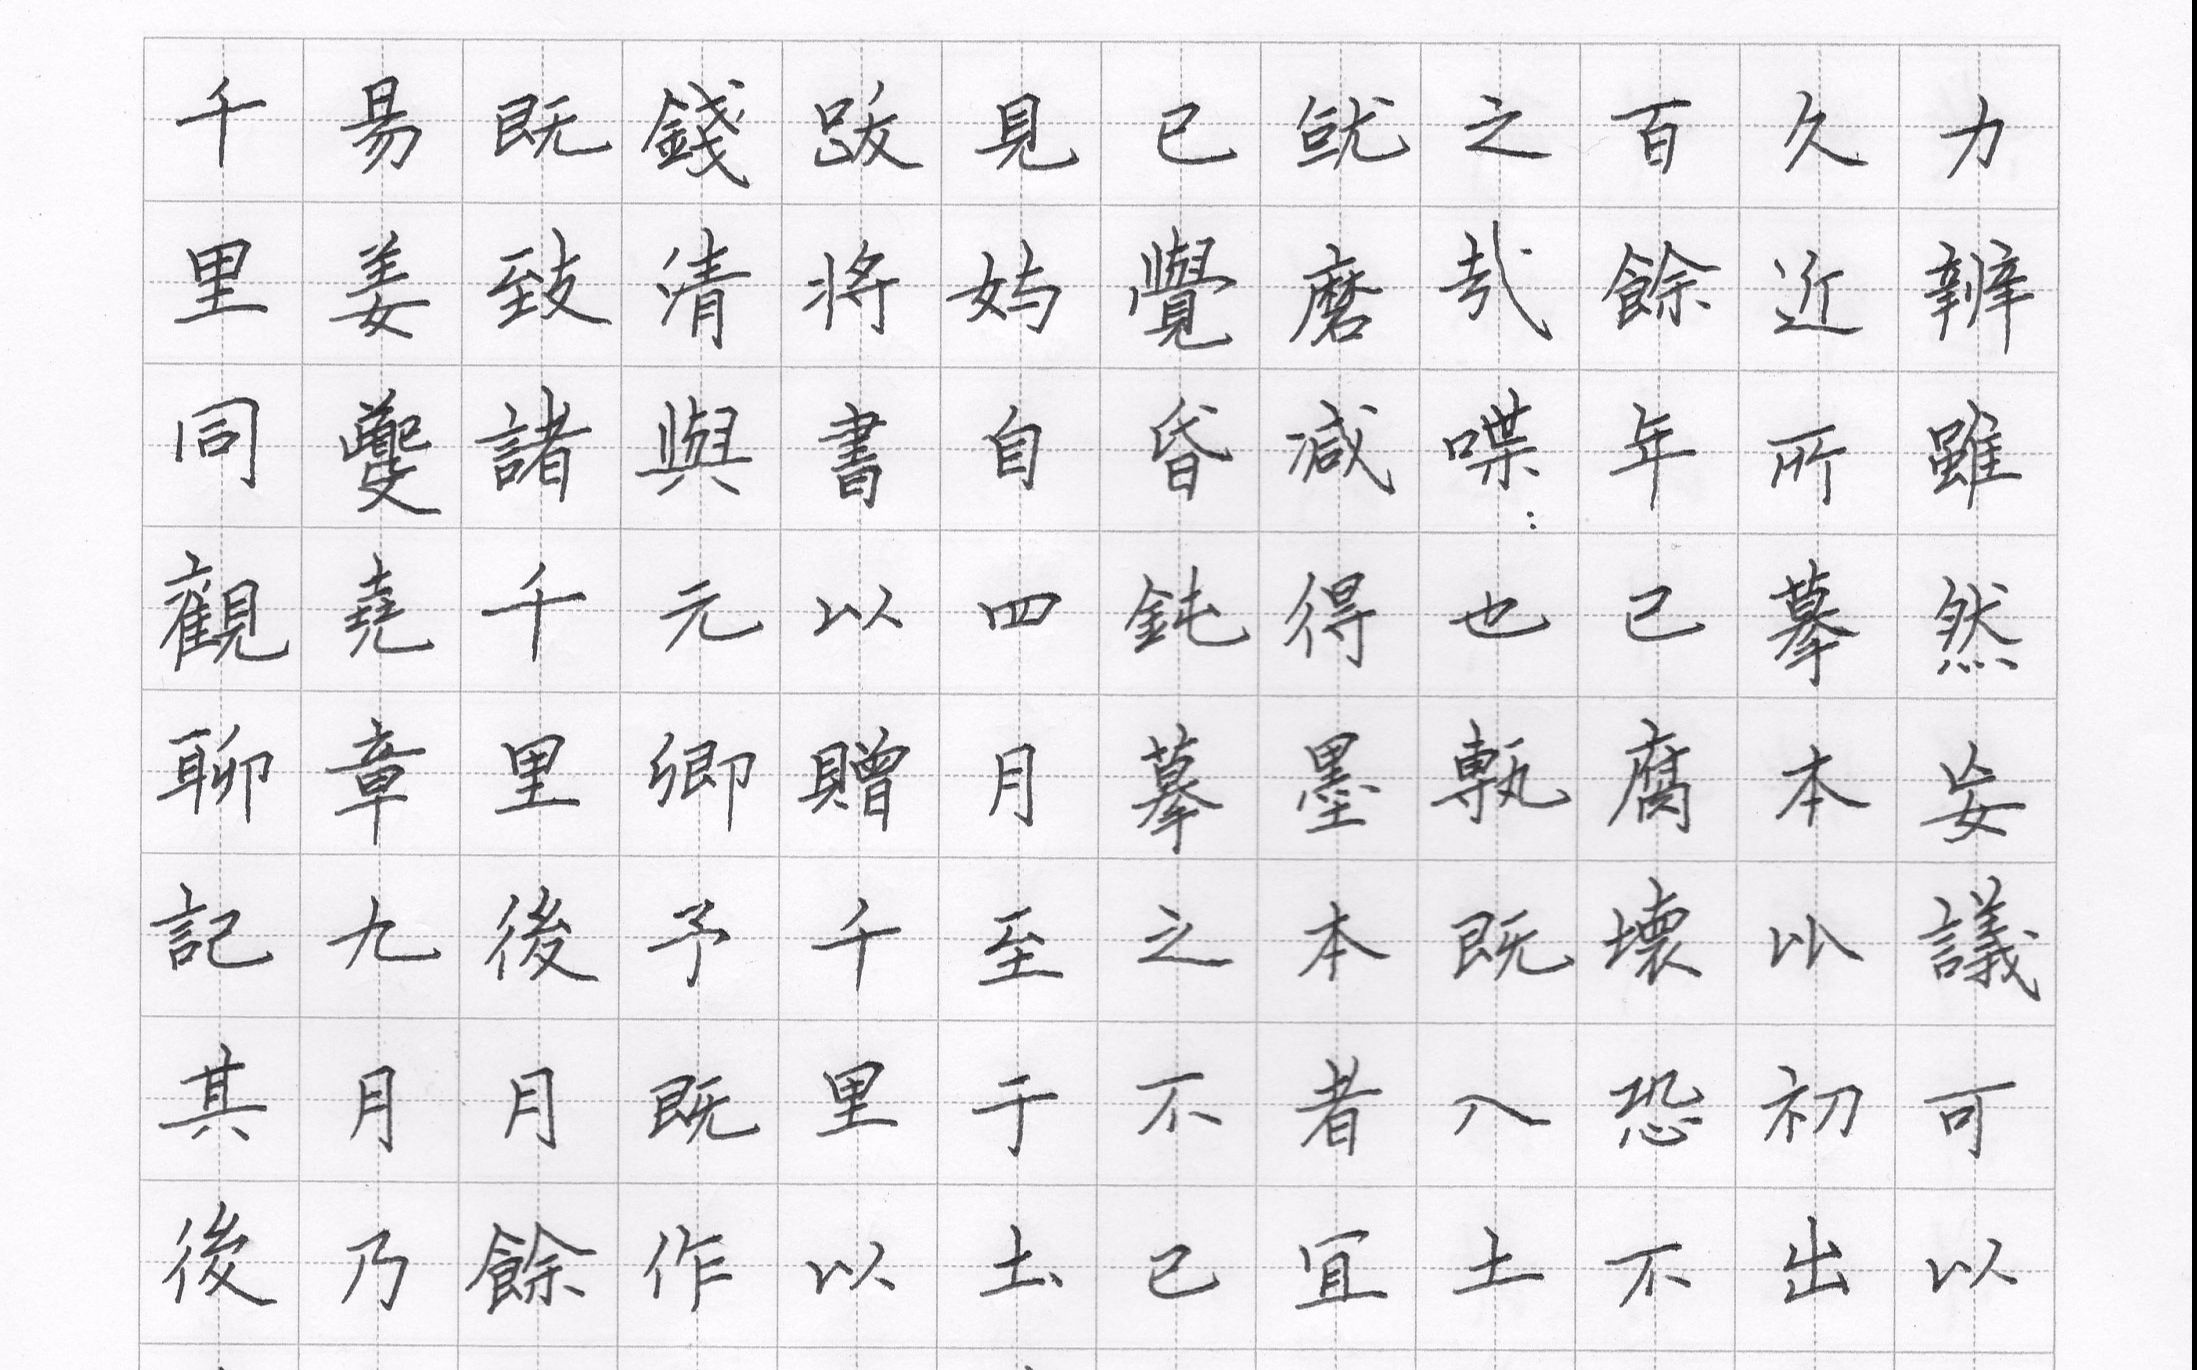 力辨雖然妄議可以
久近所摹本以初出
百餘年已腐壞恐不
之哉喋:也甎既入土
就磨減得墨本者宜
已覺昏鈍摹之不已
見自四月至于土
跋將書以贈千里以
錢清與元卿予既作
既致諸千里後月餘
昜姜夔堯章九月乃
千里同觀聊記其後